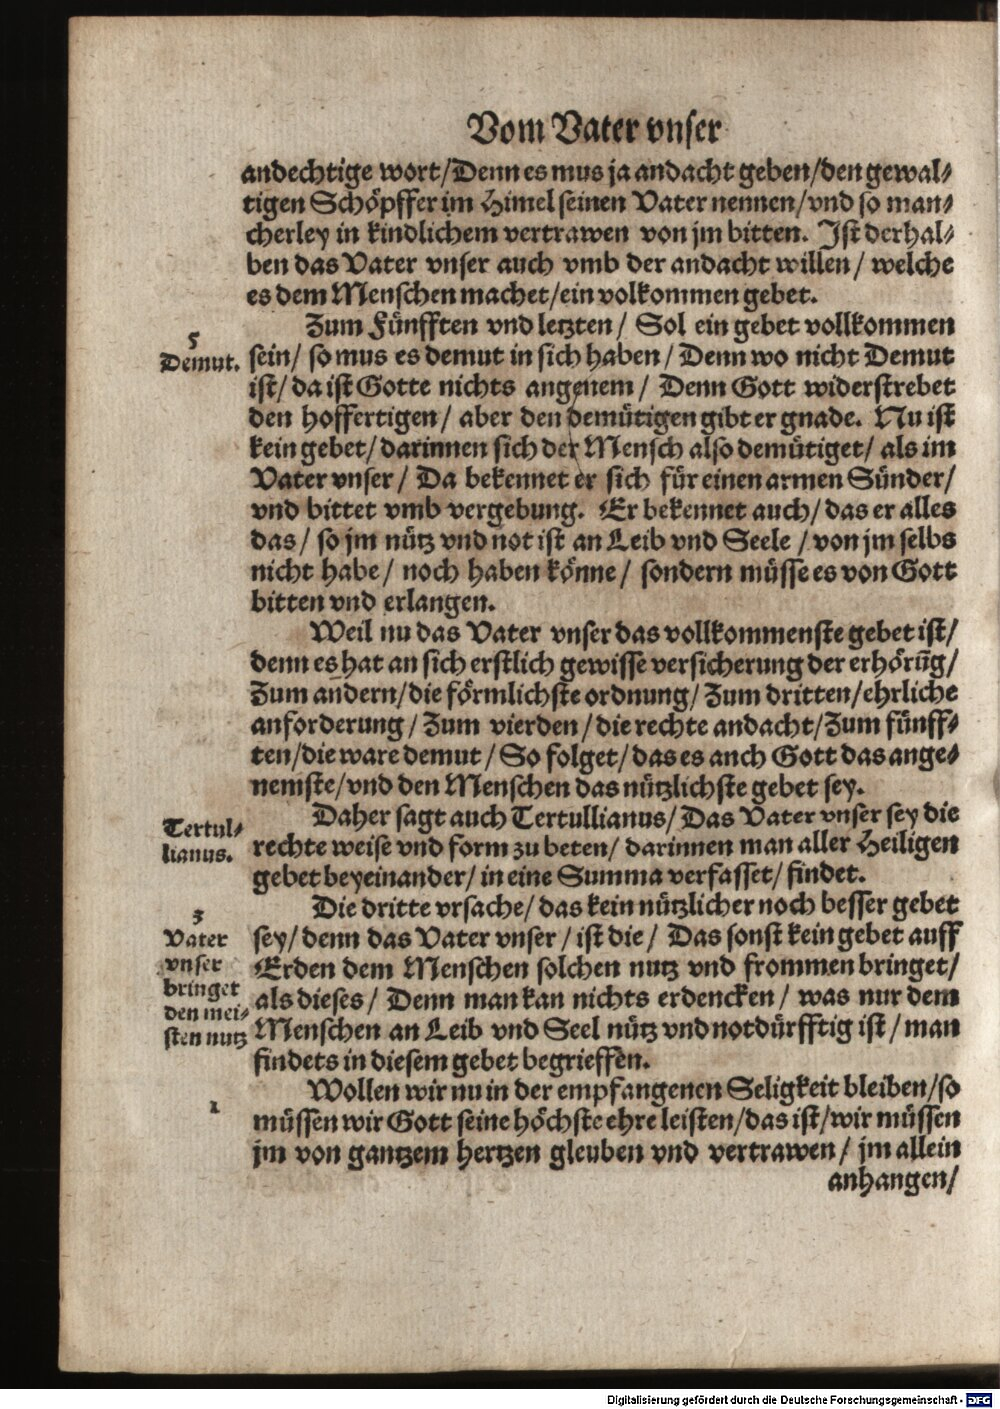 Vom Vater vnser
andechtige wort/Denn es mus ja andacht geben/den gewal-
tigen Schöpffer im Himel seinen Vater nennen/vnd so man-
cherley in kindlichem vertrawen von jm bitten. Ist derhal-
ben das Vater vnser auch vmb der andacht willen/ welche
es dem Menschen machet/ein volkommen gebet.
Zum Fünfften vnd letzten/ Sol ein gebet vollkommen
5
Demut.
sein/ so mus es demut in sich haben/ Denn wo nicht Demut
ist/ da ist Gotte nichts angenem/ Denn Gott widerstrebet
den hoffertigen/ aber den demütigen gibt er gnade. Nu ist
kein gebet/ darinnen sich der Mensch also demütiget/ als im
Vater vnser/ Da bekennet er sich für einen armen Sünder/
vnd bittet vmb vergebung. Er bekennet auch/ das er alles
das/ so jm nütz vnd not ist an Leib vnd Seele/ von jm selbs
nicht habe/ noch haben könne/ sondern müsse es von Gott
bitten vnd erlangen.
Weil nu das Vater vnser das vollkommenste gebet ist/
denn es hat an sich erstlich gewisse versicherung der erhörūg/
Zum andern/die förmlichste ordnung/ Zum dritten/ehrliche
anforderung/ Zum vierden/ die rechte andacht/Zum fünff-
ten/die ware demut/ So folget/ das es anch Gott das ange-
nemste/vnd den Menschen das nützlichste gebet sey.
Tertul-
lianus.
Daher sagt auch Tertullianus/ Das Vater vnser sey die
rechte weise vnd form zu beten/ darinnen man aller Heiligen
gebet beyeinander/ in eine Summa verfasset/ findet.
3
Vater
vnser
bringet
den mei-
sten nutz
Die dritte vrsache/ das kein nützlicher noch besser gebet
sey/ denn das Vater vnser/ ist die/ Das sonst kein gebet auff
Erden dem Menschen solchen nutz vnd frommen bringet/
als dieses/ Denn man kan nichts erdencken/ was nur dem
Menschen an Leib vnd Seel nütz vnd notdürfftig ist/ man
findets in diesem gebet begrieffen.
1
Wollen wir nu in der empfangenen Seligkeit bleiben/so
müssen wir Gott seine höchste ehre leisten/das ist/wir müssen
jm von gantzem hertzen gleuben vnd vertrawen/ jm allein
anhangen/
Digitalisierung gefördert durch die Deutsche Forschungsgemeinschaft - DFG